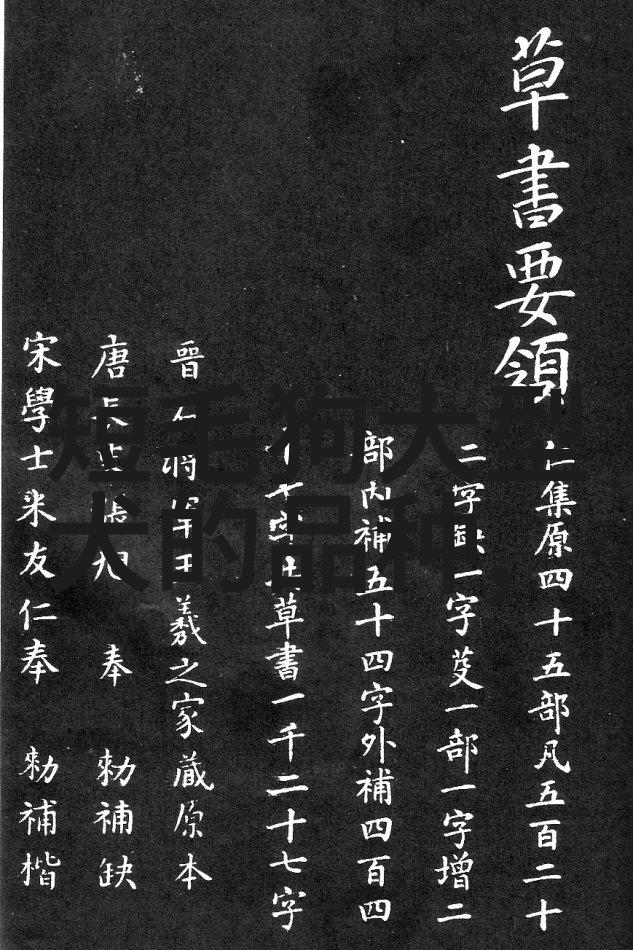 草書要領
集原四十五部凡五百二十
二字缺一字芟一部一字增二
部内補五十四字外補四百四
十七字共草書一千二十七字
晋右将軍王羲之家蔵原本
唐長史張旭 奉 勑補缺
宋學士米友仁奉 勑補楷
短毛狗大型
犬的品种,